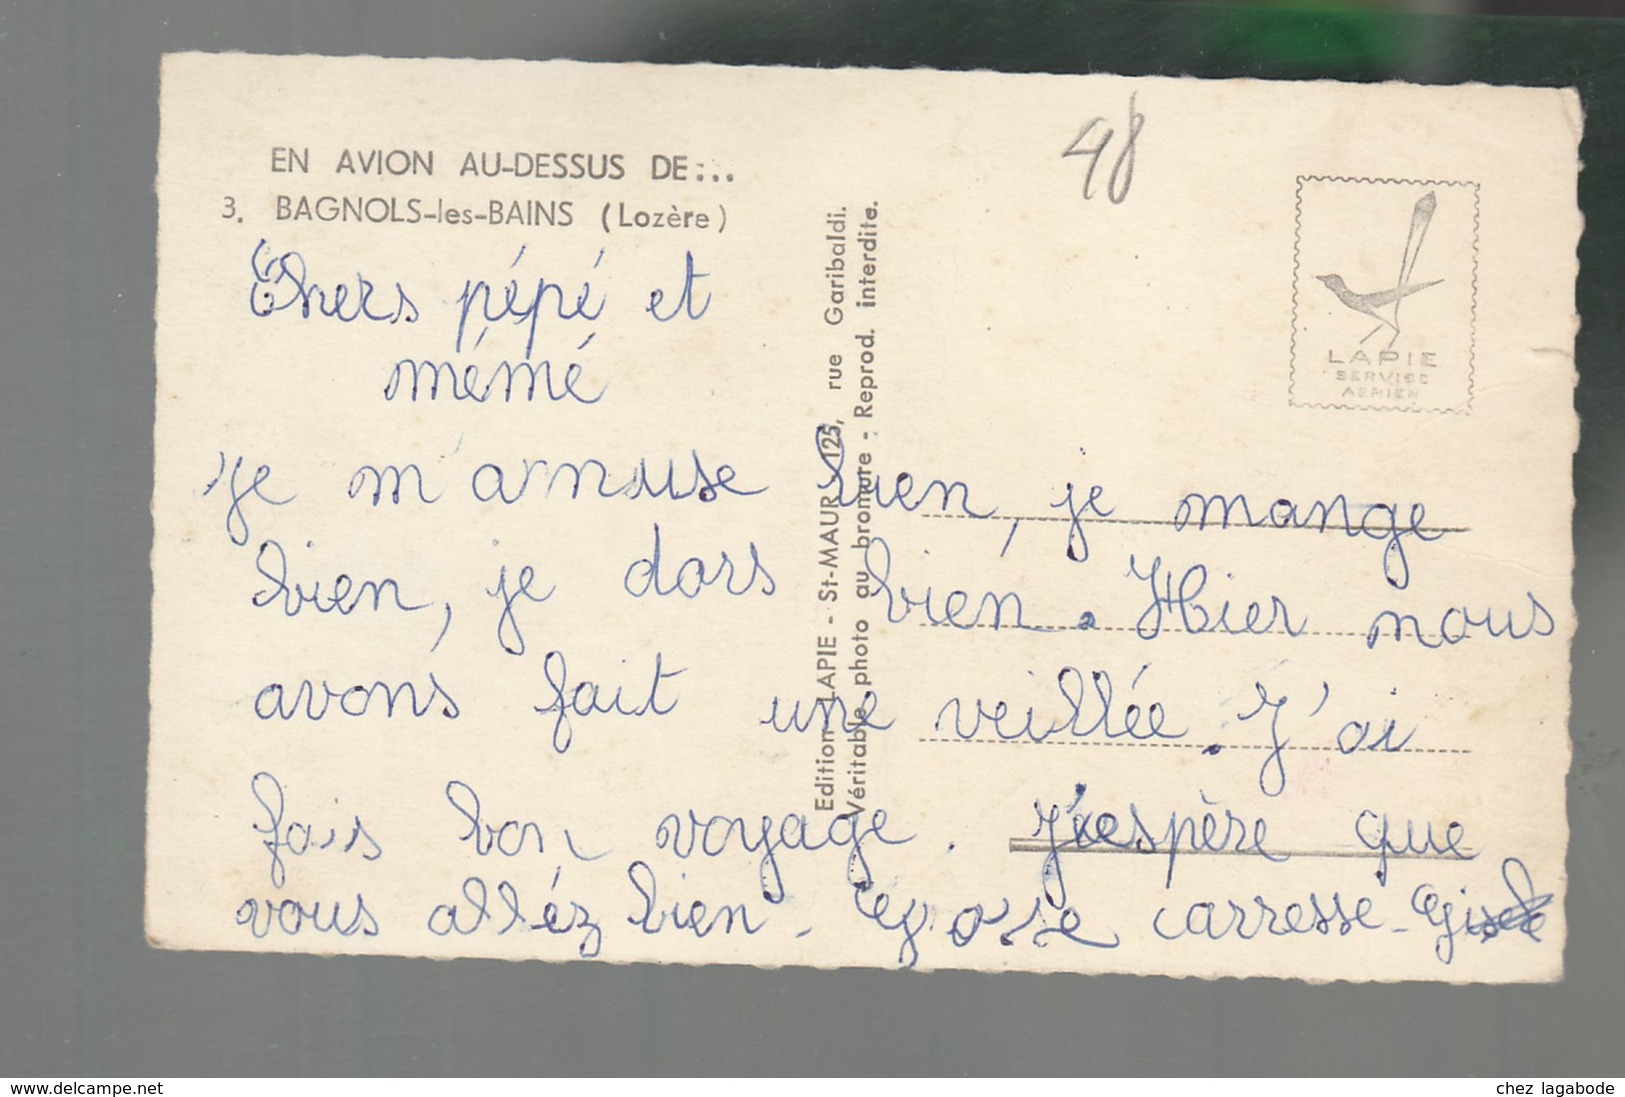 EN AVION AU-DESSUS DE:..
3. BAGNOLS-les-BAINS (Lozère)
48
LAPIE
SERVICE
AERIEN
Edition LAPIE - St-MAUR 125, rue Garibaldi.
Véritable photo au bromure - Reprod. interdite.
Chers pépé et
mémé
Je m'amuse bien, je mange
bien, je dors bien. Hier nous
avons fait une veillée. J'ai
fais bon voyage. J'espère que
vous alléz bien. Grosse carresse - Gisele
www.delcampe.net
chez lagabode